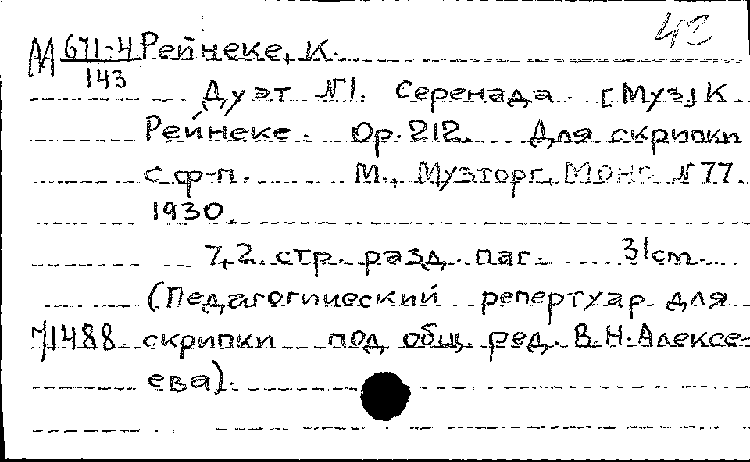 42
М 671-4 Рейнеке, К.
143
Дуэт №1. Серенада [Муз] К
Рейнеке. Op. 212. Для скрипки
с ф-п. М., Музторг, МОНО № 77.
1930.
7,2 стр. разд. паг. 31cm.
(Педагогический репертуар для
71488 скрипки под общ. ред. В.Н. Алексе-
ева).